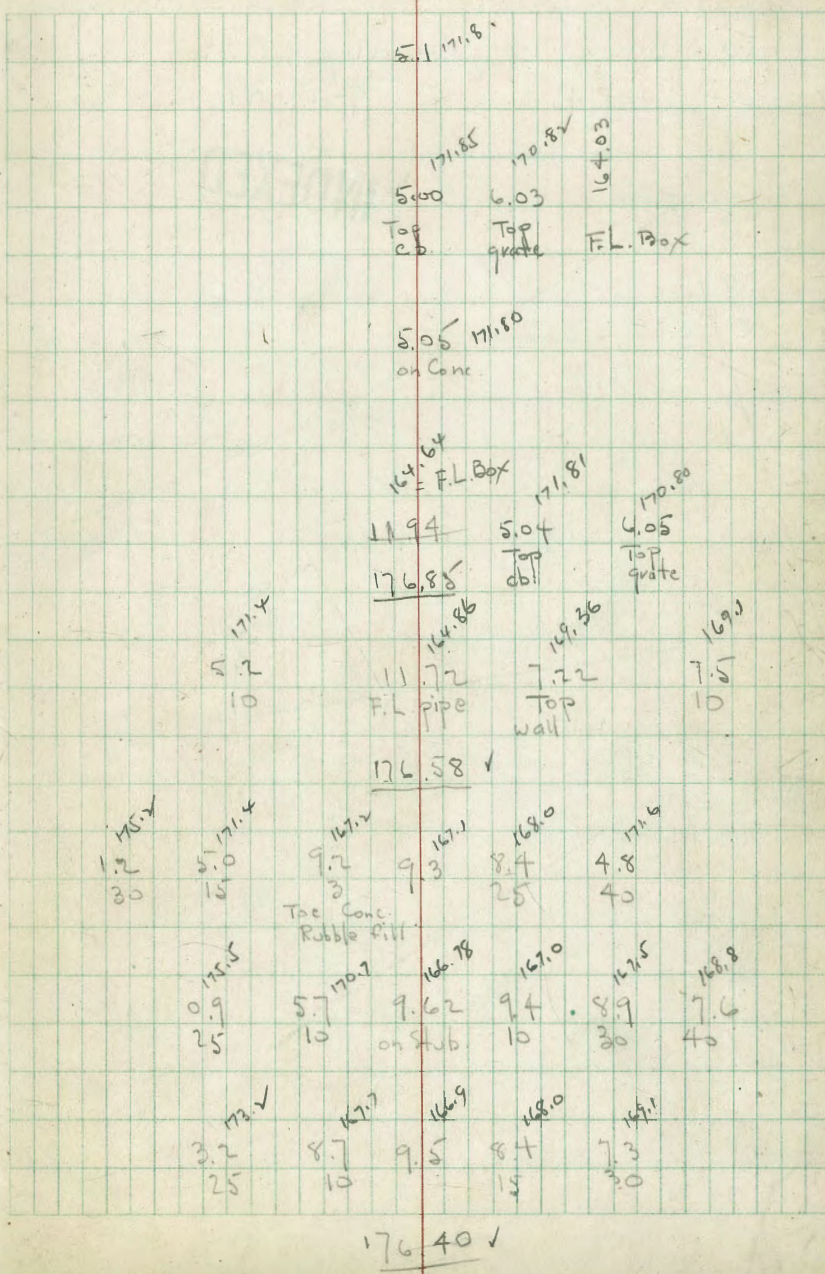 5.1 171.8
171.85 170.82 164.03
5.00 6.03
Top Top F.L. Box
cb. grate
5.05 171.80
on Conc
164.64
= F.L. Box 171.81 170.80
11 94 5.04 6.05
Top Top
176.85 cb grate
171.4 164.86 169.36 169.1
5.2 11.72 7.22 7.5
10 F.L. pipe Top 10
wall
176.58 ✓
175.2 171.4 167.2 167.1 168.0 171.6
1.2 5.0 9.2 9.3 8.4 4.8
30 15 3 25 40
Toe Conc.
Rubble fill
175.5 170.7 166.78 167.0 167.5 168.8
0.9 5.7 9.62 9.4 8.9 7.6
25 10 on Stub. 10 30 40
173.2 167.7 166.9 168.0 169.1
3.2 8.7 9.5 8.4 7.3
25 10 15 30
176.40 ✓